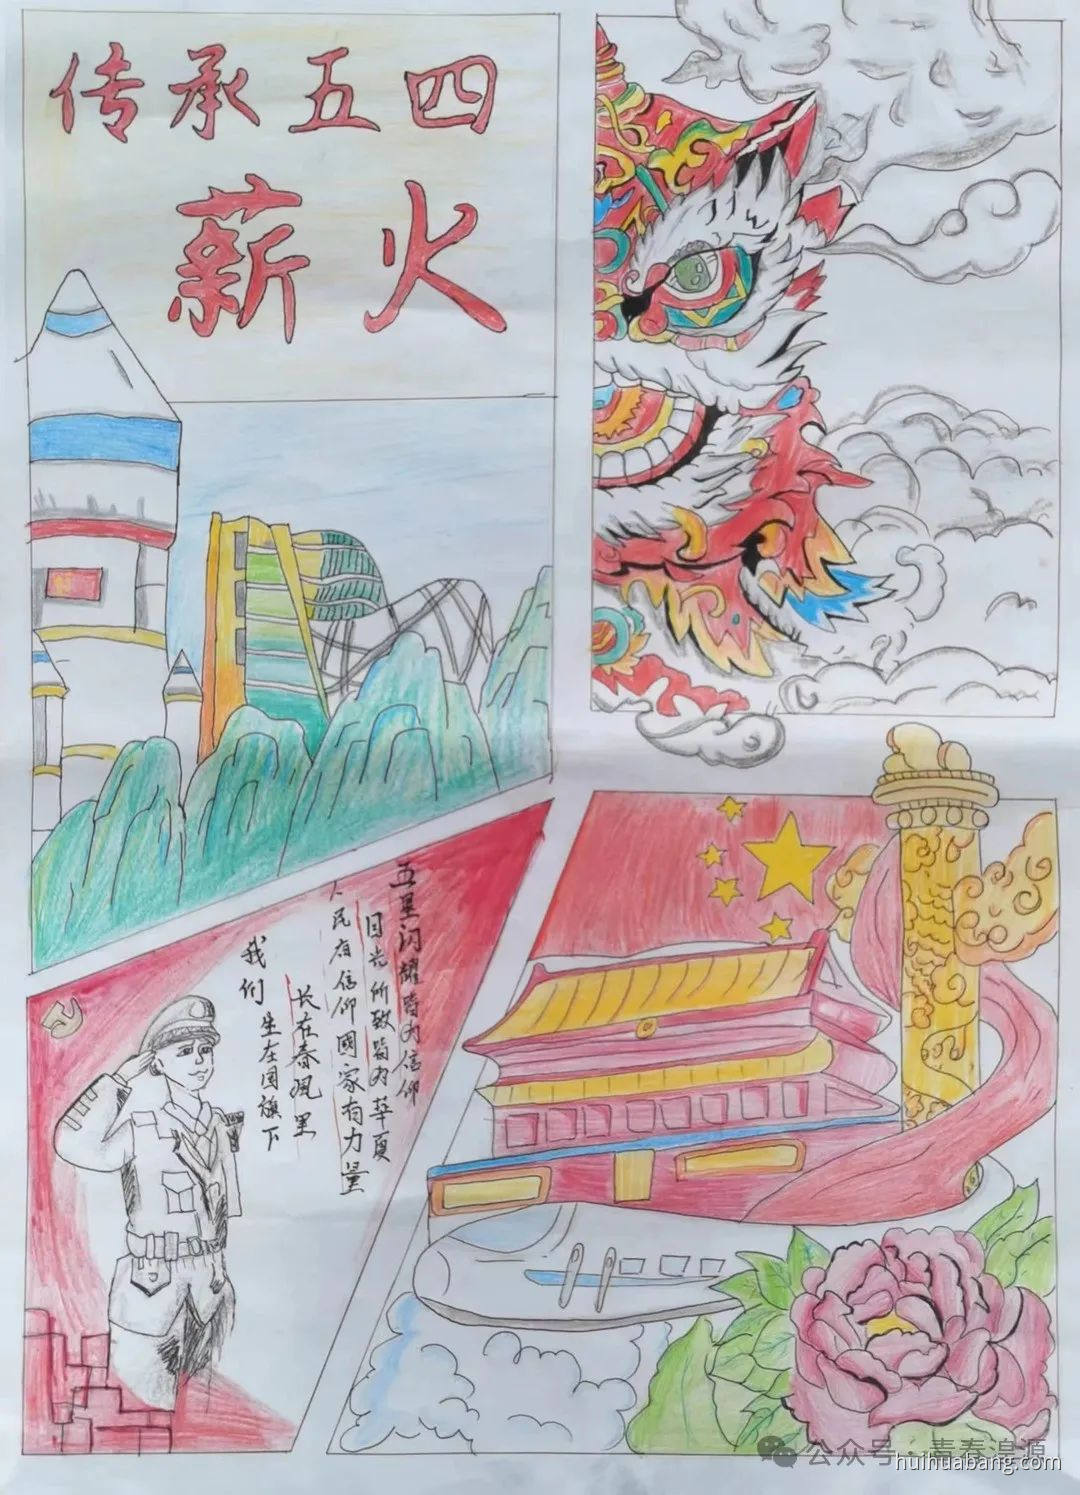 传承五四
薪火
五星闪耀皆为信仰
目光所致皆为華夏
人民有信仰國家有力量
长在春风里
我们生在国旗下
公众号·青春湟源
huihuabang.com